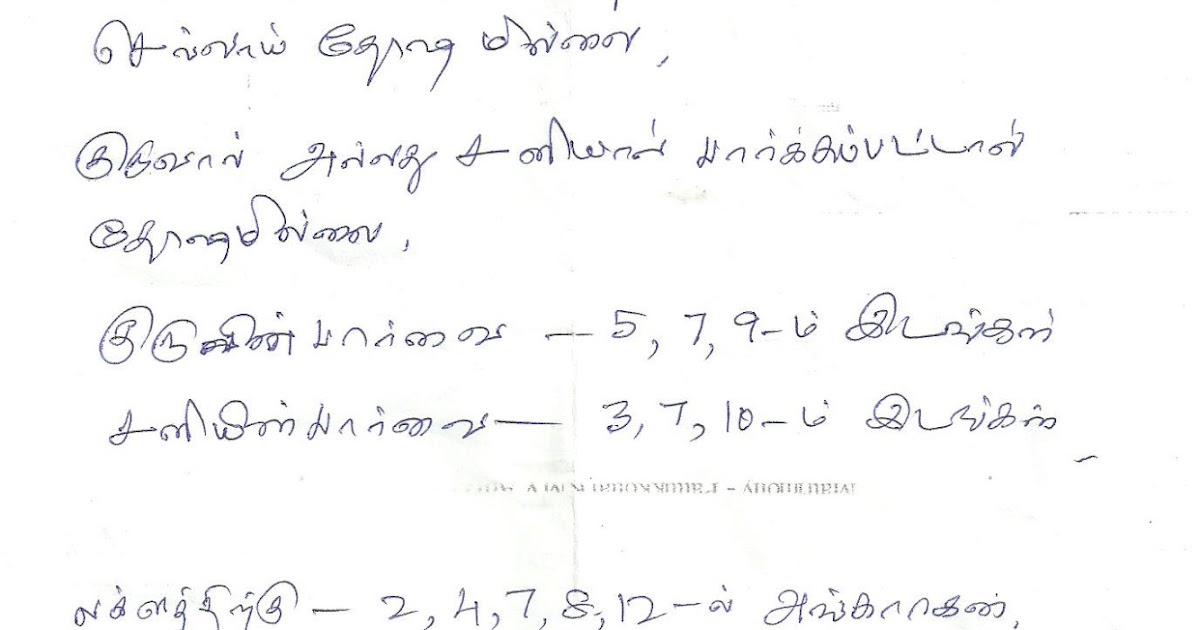 செவ்வாய் தோஷ மில்லை,
குருவால் அல்லது சனியால் பார்க்கப்பட்டால்
தோஷமில்லை,
குருவின் பார்வை — 5, 7, 9-ம் இடங்கள்
சனியின் பார்வை — 3, 7, 10-ம் இடங்கள்
லக்னத்திற்கு — 2, 4, 7, 8, 12-ல் அங்காரகன்,